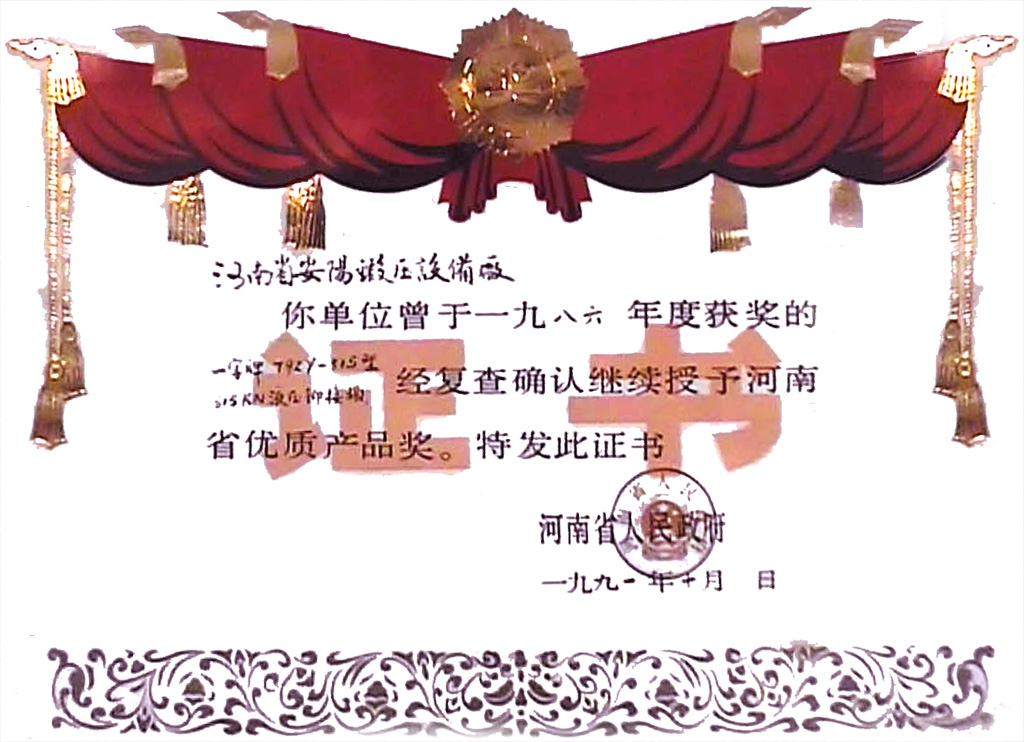 河南省安陽鍛压設備廠
你单位曾于一九八六 年度获奖的
一字牌 T92Y-315型
315KN液压铆接机
经复查确认继续授予河南
省优质产品奖。特发此证书
证书
河南省人民政府
一九九一年十月 日